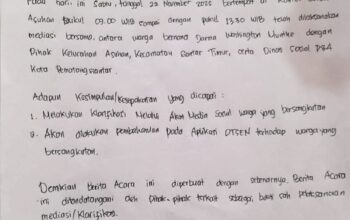 Pada hari ini Sabtu, tanggal 22 November 2025 bertempat di Kantor
Asuhan Pukul 09.00 WIB sampai dengan pukul 13.30 WIB telah dilaksanakan
mediasi bersama antara warga bernama Darma Washington Munthe dengan
Pihak Kelurahan Asuhan, Kecamatan Siantar Timur, serta Dinas Sosial P3A
Kota Pematangsiantar.
Adapun Kesimpulan/Kesepakatan yang dicapai :
1. Melakukan Klarifikasi Melalui Akun Media Sosial warga yang bersangkutan
2. Akan dilakukan pembaharuan pada Aplikasi DTSEN terhadap warga yang
bersangkutan.
Demikian Berita Acara ini diperbuat dengan sebenarnya. Berita Acara
ini ditandatangani oleh Pihak-pihak terkait sebagai bukti sah pelaksanaan
mediasi/Klarifikasi.